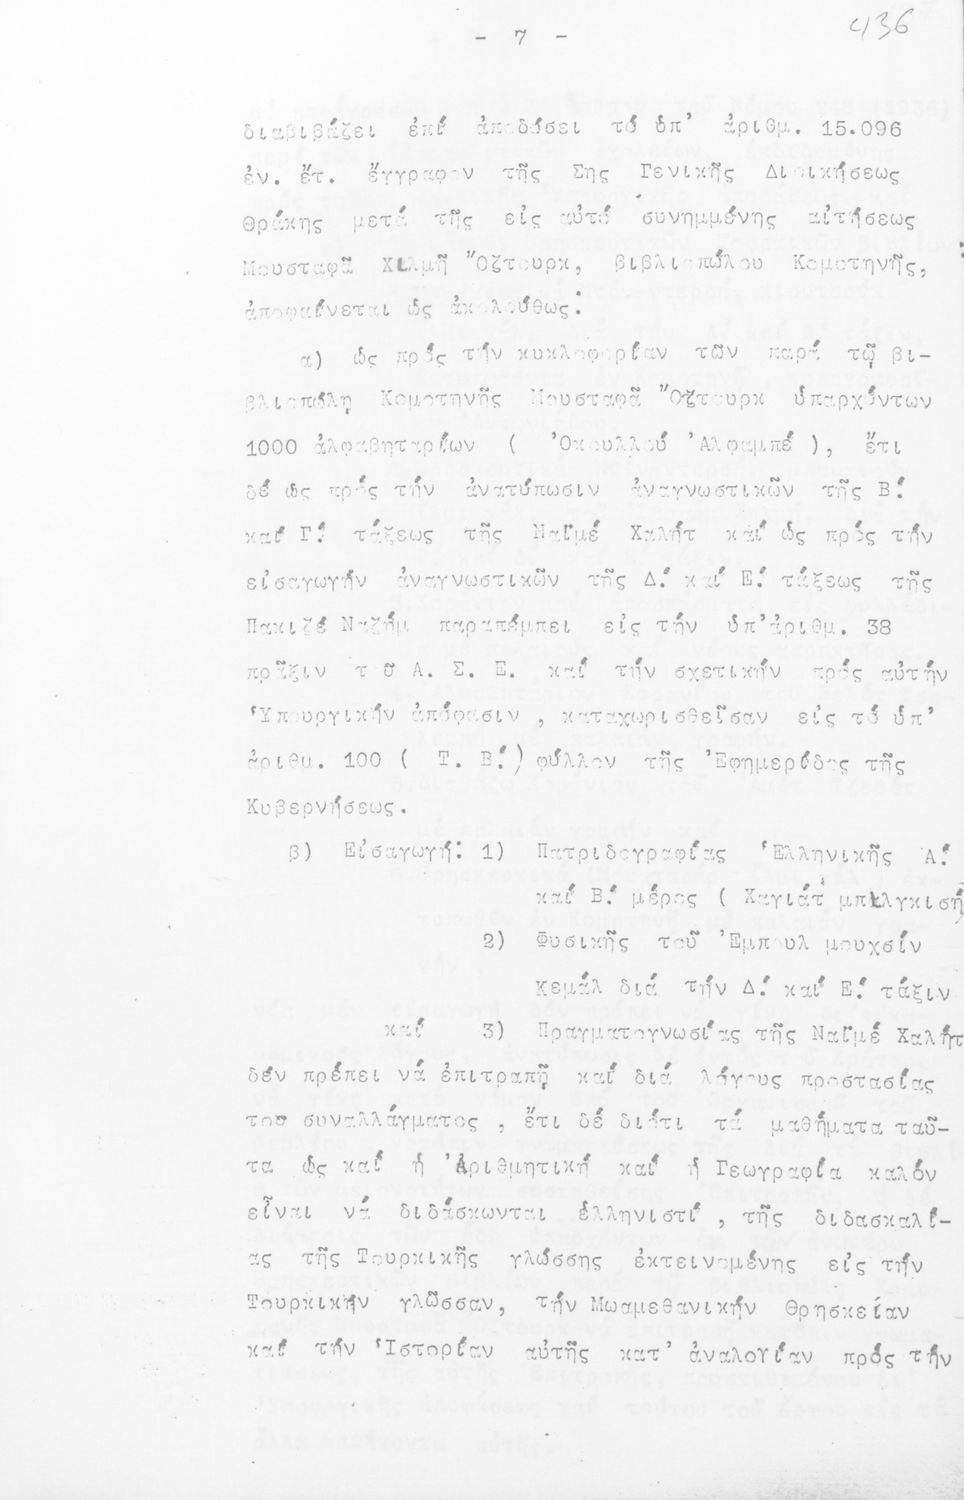 - 7 -
436
διαβιβάζει ἐπί ἀποδόσει τό ὑπ' ἀριθμ. 15.096
ἐν. ἔτ. ἔγγραφον τῆς Σης Γενικῆς Διοικήσεως
Θράκης μετά τῆς εἰς αὐτό συνημμένης αἰτήσεως
Μουσταφᾶ Χιλμῆ Ὀζτουρκ, βιβλιοπώλου Κομοτηνῆς,
ἀποφαίνεται ὡς ἀκολούθως:
α) ὡς πρός τήν κυκλοφορίαν τῶν παρά τῷ βι-
βλιοπώλῃ Κομοτηνῆς Μουσταφᾶ Ὀζτουρκ ὑπαρχόντων
1000 ἀλφαβηταρίων ( Ὀκουλλού Ἀλφαμπέ ), ἔτι
δέ ὡς πρός τήν ἀνατύπωσιν ἀναγνωστικῶν τῆς Β΄
καί Γ΄ τάξεως τῆς Ναϊμέ Χαλήτ καί ὡς πρός τήν
εἰσαγωγήν ἀναγνωστικῶν τῆς Δ΄ καί Ε΄ τάξεως τῆς
Πακιζέ Ναζήμ παραπέμπει εἰς τήν ὑπ'ἀριθμ. 38
πρᾶξιν τοῦ Α. Σ. Ε. καί τήν σχετικήν πρός αὐτήν
Ὑπουργικήν ἀπόφασιν , καταχωρισθεῖσαν εἰς τό ὑπ'
ἀριθμ. 100 ( Τ. Β΄) φύλλον τῆς Ἐφημερίδος τῆς
Κυβερνήσεως.
β) Εἰσαγωγή: 1) Πατριδογραφίας Ἑλληνικῆς Α΄
καί Β΄ μέρος ( Χαγιάτ μπιλγκισή)
2) Φυσικῆς τοῦ Ἐμπουλ μουχσίν
Κεμάλ διά τήν Δ΄ καί Ε΄ τάξιν
καί 3) Πραγματογνωσίας τῆς Ναϊμέ Χαλήτ
δέν πρέπει νά ἐπιτραπῇ καί διά λόγους προστασίας
του συναλλάγματος , ἔτι δέ διότι τά μαθήματα ταῦ-
τα ὡς καί ἡ Ἀριθμητική καί ἡ Γεωγραφία καλόν
εἶναι νά διδάσκωνται ἑλληνιστί , τῆς διδασκαλί-
ας τῆς Τουρκικῆς γλώσσης ἐκτεινομένης εἰς τήν
Τουρκικήν γλῶσσαν, τήν Μωαμεθανικήν Θρησκείαν
καί τήν Ἱστορίαν αὐτῆς κατ' ἀναλογίαν πρός τήν